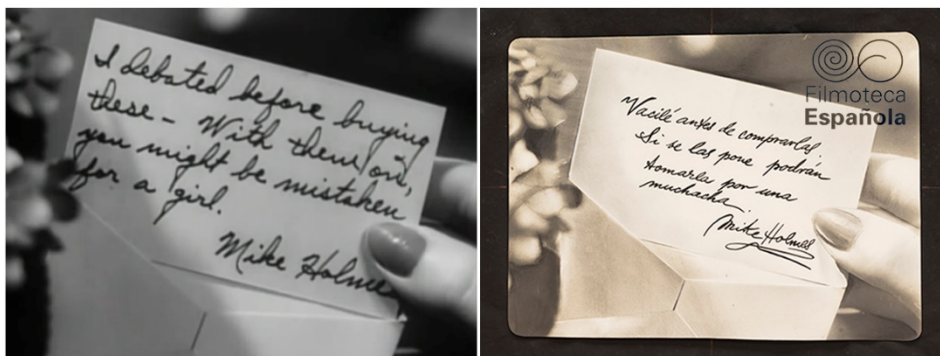 I debated before buying
these - With them on,
you might be mistaken
for a girl.
Mike Holme
Filmoteca
Española
Vacilé antes de comprarlas,
Si se las pone podrán
tomarla por una
muchacha.
Mike Holmes